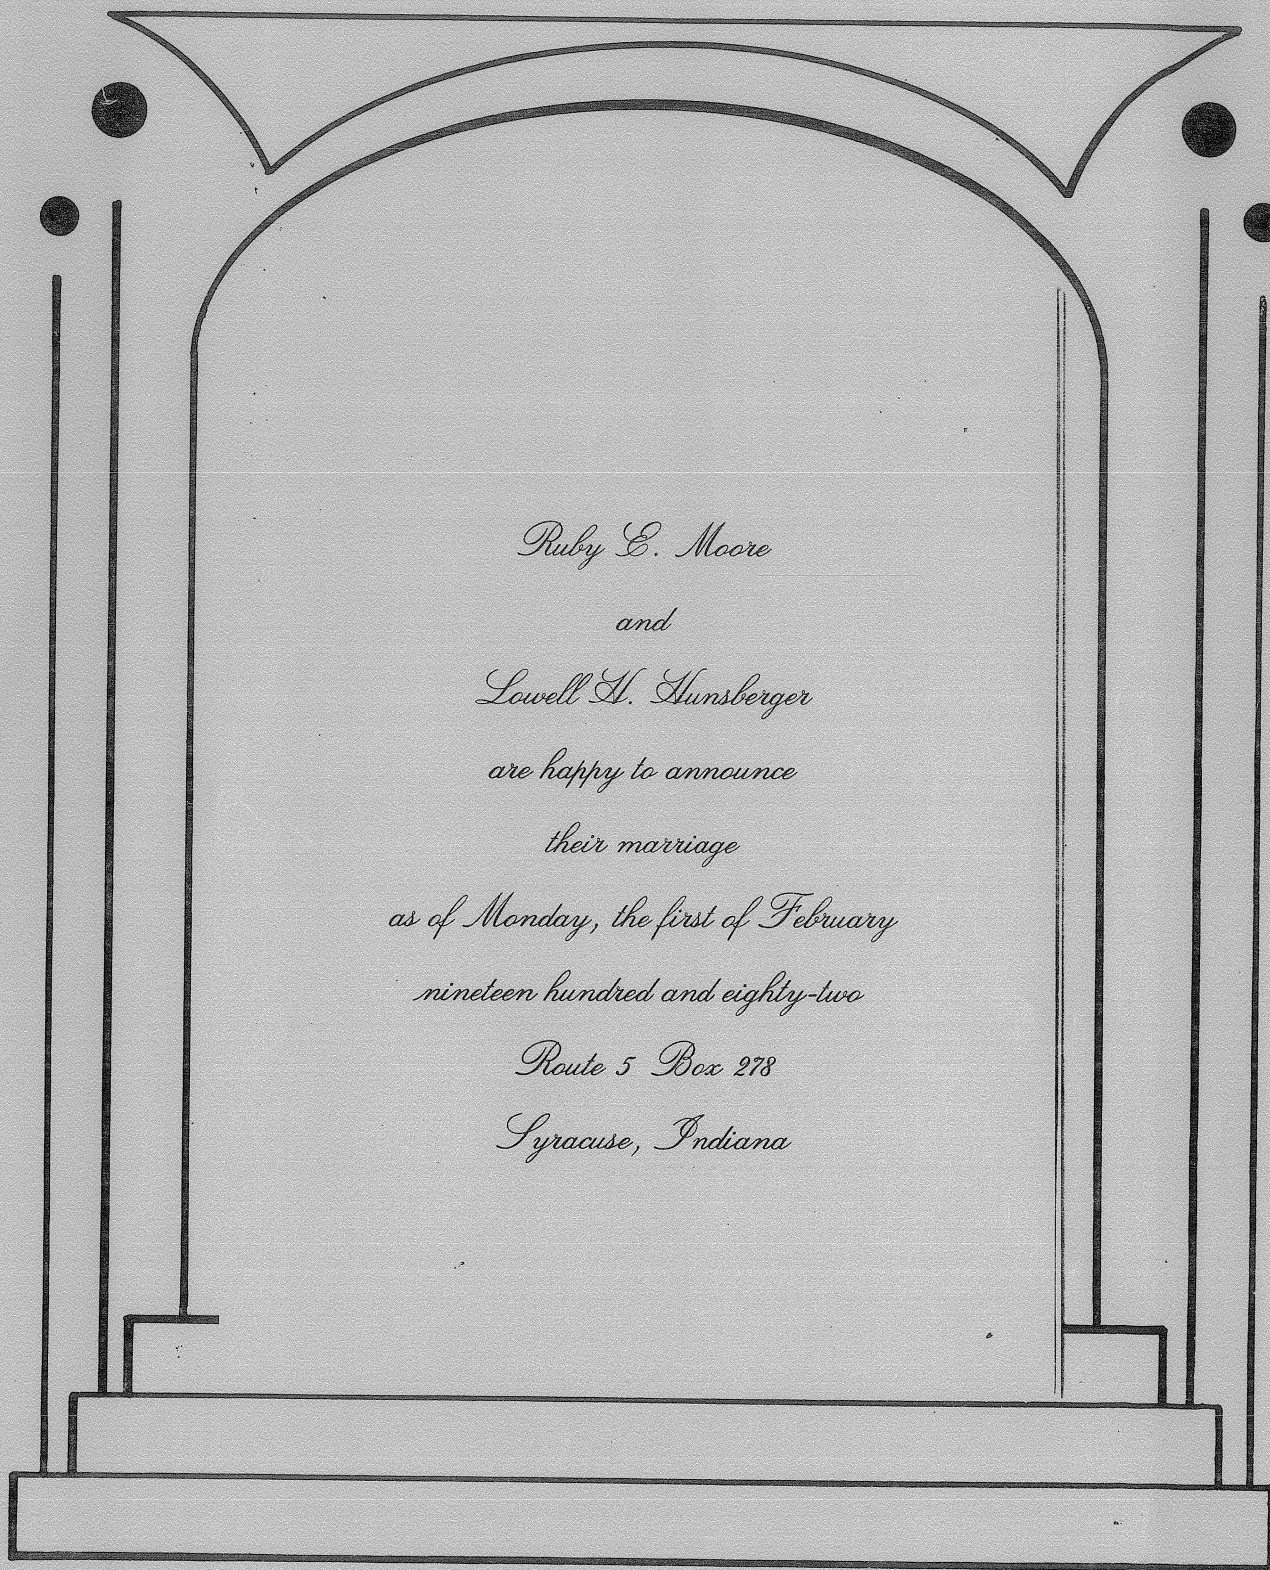 Ruby E. Moore
and
Lowell H. Hunsberger
are happy to announce
their marriage
as of Monday, the first of February
nineteen hundred and eighty-two
Route 5 Box 278
Syracuse, Indiana